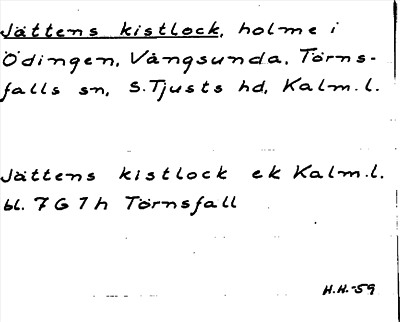 Jättens kistlock, holme i
Ödingen, Vångsunda, Törns-
falls sn, S. Tjusts hd, Kalm. l.
Jättens kistlock ek Kalm. l.
bl. 7 G 7 h Törnsfall
H.H.-59